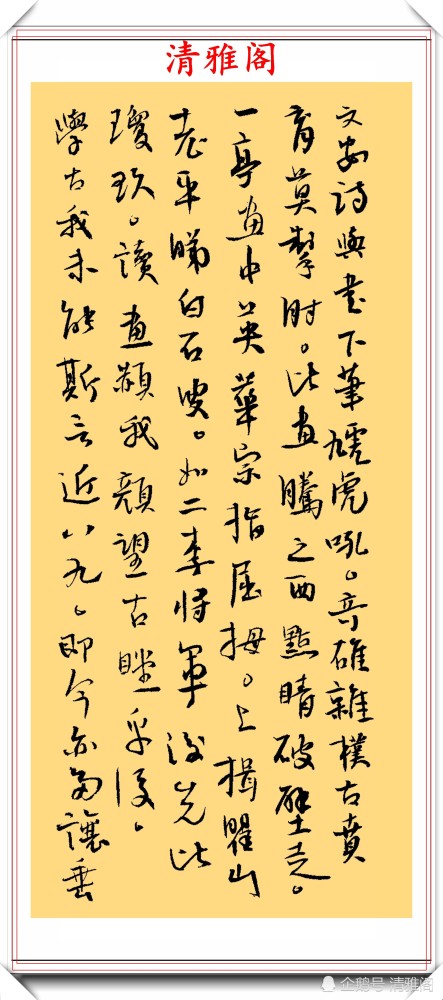 清雅阁
文安詩與書下筆虓虎吼。奇礭雜樸古賁
育莫掣肘。此畫騰之西點睛破壁走。
一亭畫中英華宗指屈拇。上揖瞿山
老平睇白石叟。如二李將軍後先比
瓊玖。讀畫顙我顏望古瞠乎後。
學古我未能斯言近八九。即今亦當讓垂
企鹅号 清雅阁